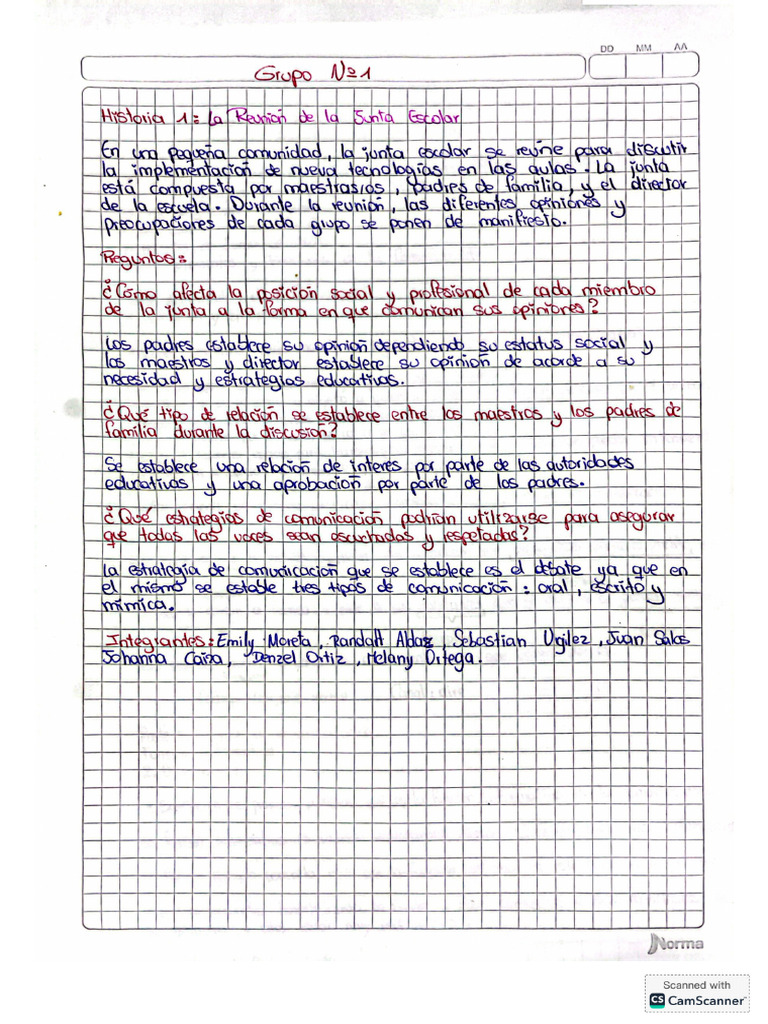 DD MM AA
Grupo Nº1
Historia 1: La Reunión de la Junta Escolar
En una pequeña comunidad, la junta escolar se reúne para discutir
la implementación de nueva tecnologías en las aulas. La junta
está compuesta por maestrasros, padres de familia, y el director
de la escuela. Durante la reunión, las diferentes opiniones y
preocupaciones de cada grupo se ponen de manifiesto.
Preguntas:
¿Cómo afecta la posición social y profesional de cada miembro
de la junta a la forma en que comunican sus opiniones?
Los padres establece su opinión dependiendo su estatus social y
los maestros y director establece su opinión de acorde a su
necesidad y estrategias educativas.
¿Qué tipo de relación se establece entre los maestros y los padres de
familia durante la discusión?
Se establece una relación de interes por parte de las autoridades
educativas y una aprobación por parte de los padres.
¿Qué estrategias de comunicación podrían utilizarse para asegurar
que todas las voces sean escuchadas y respetadas?
La estrategia de comunicación que se establece es el debate ya que en
el mismo se estable tres tipos de comunicación: oral, escrito y
mímica.
Integrantes: Emily Moreta, Randall Aldaz, Sebastian Ugilez, Juan Salas
Johanna Caiza, Denzel Ortiz, Melany Ortega.
Norma
Scanned with
CS CamScanner